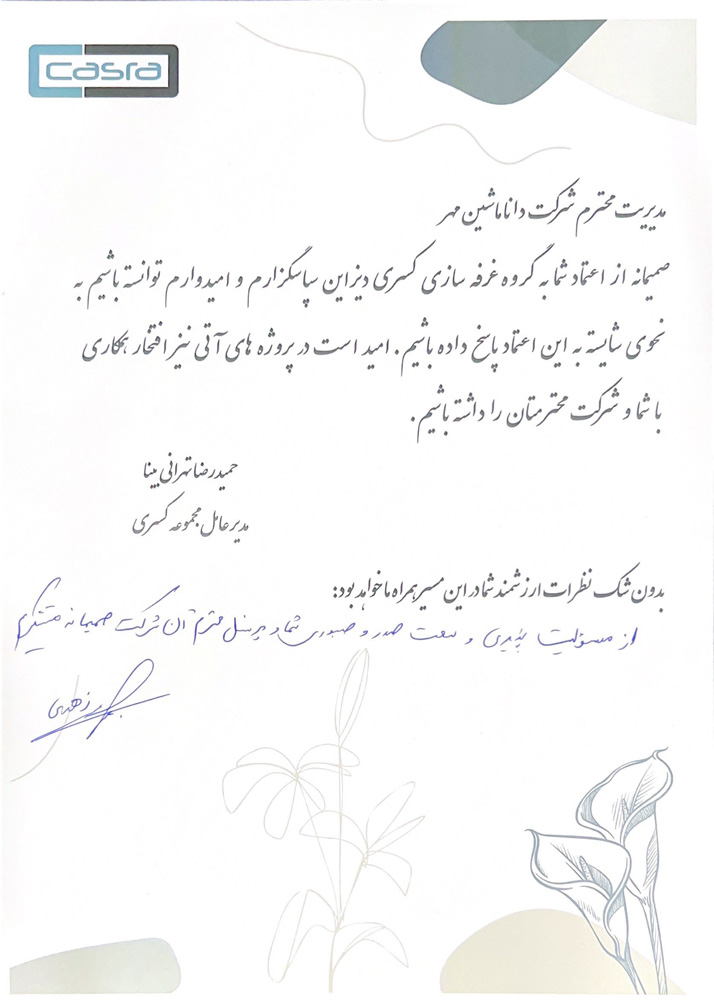 casra
مدیریت محترم شرکت دانا ماشین مهر
صمیمانه از اعتماد شما به گروه غرفه سازی کسری دیزاین سپاسگزارم و امیدوارم توانسته باشیم به
نحوی شایسته به این اعتماد پاسخ داده باشیم. امید است در پروژه های آتی نیز افتخار همکاری
با شما و شرکت محترمتان را داشته باشیم.
حمیدرضا تهرانی بینا
مدیرعامل مجموعه کسری
بدون شک نظرات ارزشمند شما در این مسیر همراه ما خواهد بود:
از مسئولیت پذیری و سعت صدر و صبوری شما و پرسنل محترم آن شرکت صمیمانه متشکرم